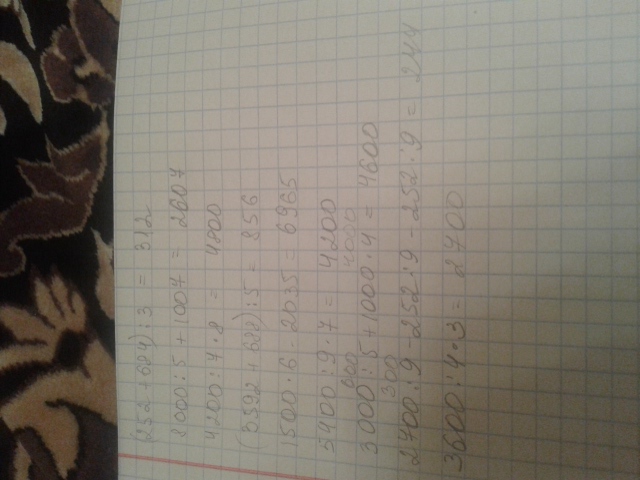 (252 + 684) : 3 = 312
8000 : 5 + 1007 = 2607
4200 : 7 · 8 = 4800
(3592 + 688) : 5 = 856
1500 · 6 - 2035 = 6965
5400 : 9 · 7 = 4200
600 4000
3000 : 5 + 1000 · 4 = 4600
300
2700 : 9 - 252 : 9 - 252 : 9 = 244
3600 : 4 · 3 = 2700